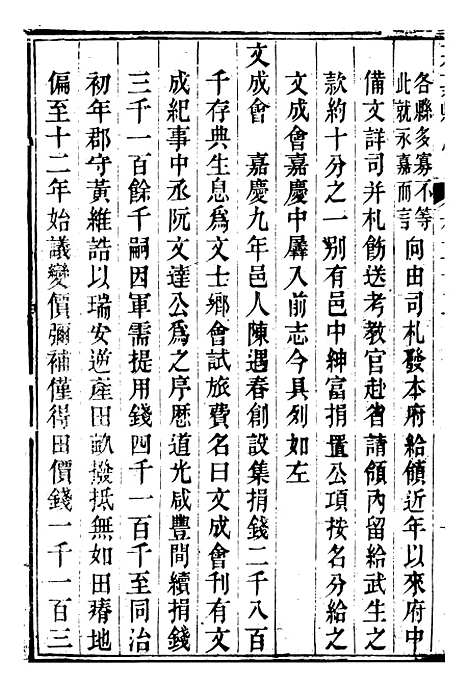 各縣多寡不等
此就永嘉而言
向由司札發本府給領近年以來府中
備文詳司并札飭送考教官赴省請領內留給武生之
款約十分之一別有邑中紳富捐置公項按名分給之
文成會嘉慶中羼入前志今具列如左
文成會 嘉慶九年邑人陳遇春創設集捐錢二千八百
千存典生息為文士鄉會試旅費名曰文成會刊有文
成紀事中丞阮文達公為之序歷道光咸豐間續捐錢
三千一百餘千嗣因軍需提用錢四千一百千至同治
初年郡守黃維誥以瑞安逆產田畝撥抵無如田瘠地
偏至十二年始議變價彌補僅得田價錢一千一百三